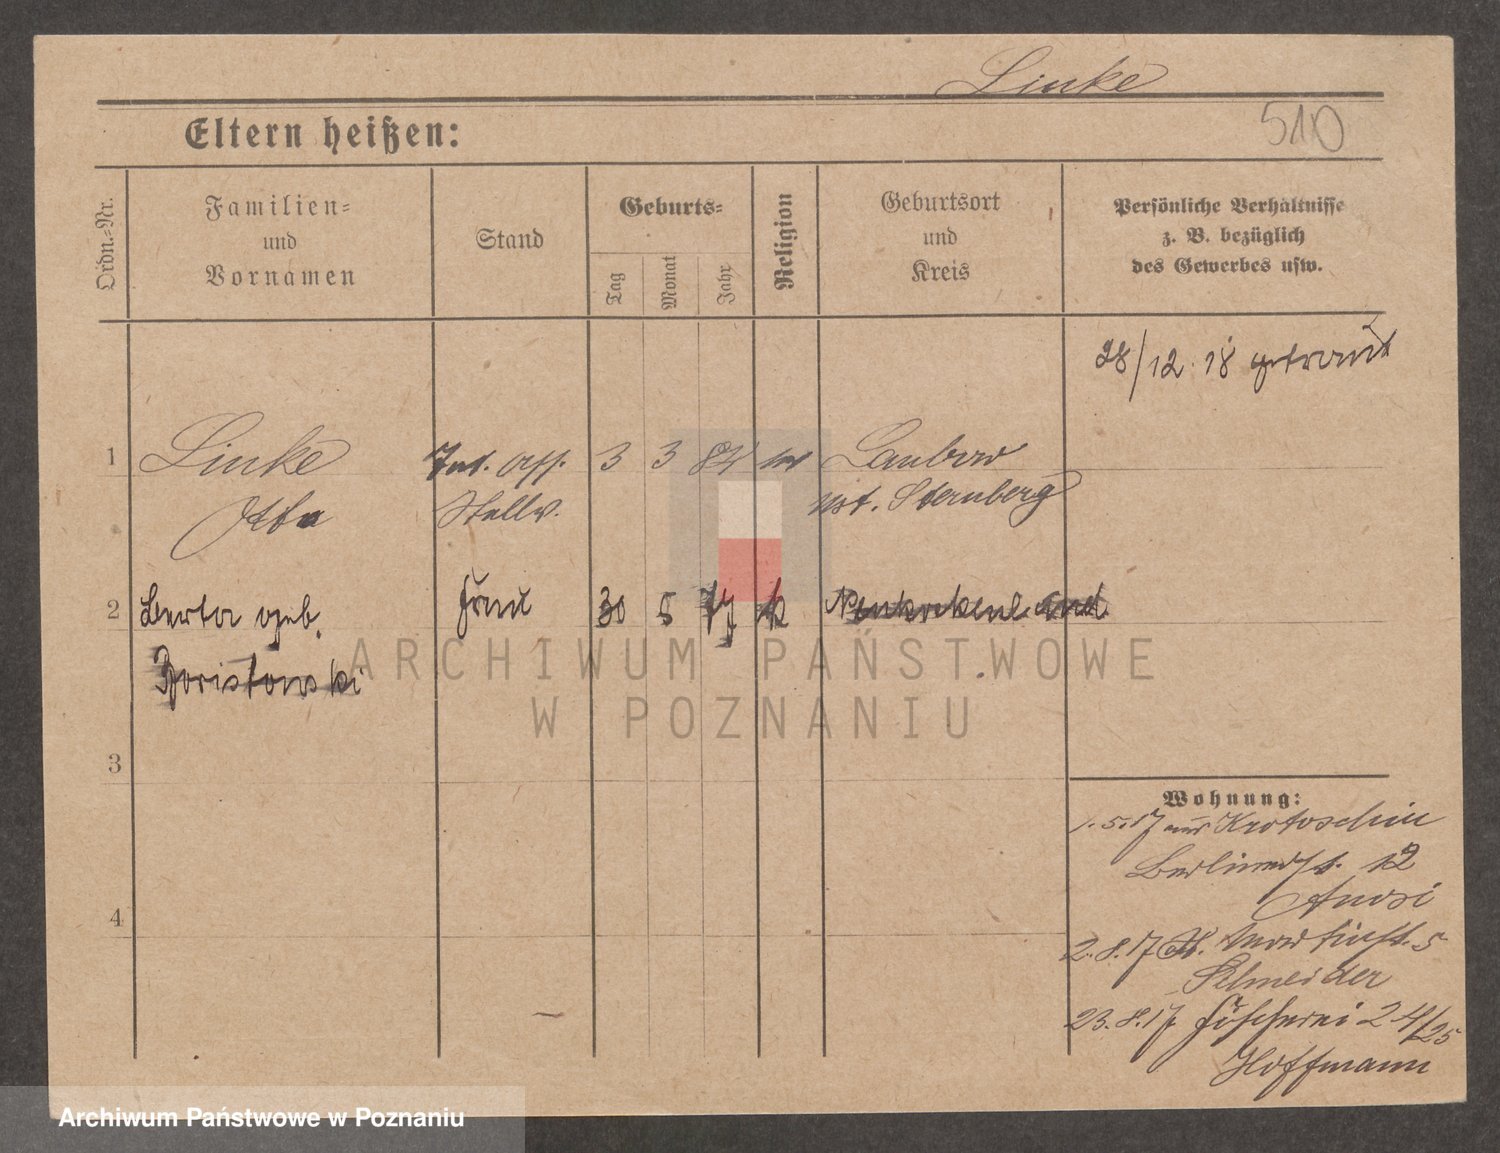 Linke
510
Eltern heißen:
Ordn.-Nr.
Familien-
und
Vornamen
Stand
Geburts-
Tag
Monat
Jahr
Religion
Geburtsort
und
Kreis
Persönliche Verhältnisse
z. B. bezüglich
des Gewerbes usw.
28/12. 18 getraut
1 Linke Int. Off. 3 3 84 Laubow
Otto Stellv. Sternberg
2 Berta geb. Frau 30 5 77 k
Boristowski
3
4
Wohnung:
1.5.17 aus Krotoschin
Berlinerst. 12
2.8.17 Martinst. 5
Schneider
23.8.17 Fischerei 24/25
Hoffmann
ARCHIWUM PAŃSTWOWE
W POZNANIU
Archiwum Państwowe w Poznaniu